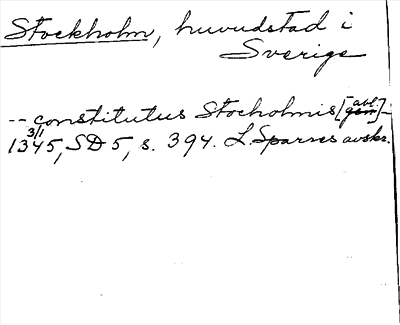 Stockholm, huvudstad i
Sverige
-- constitutus Stocholmis [abl.] -
3/1
1345, SD 5, s. 394. L. Sparres avskr.